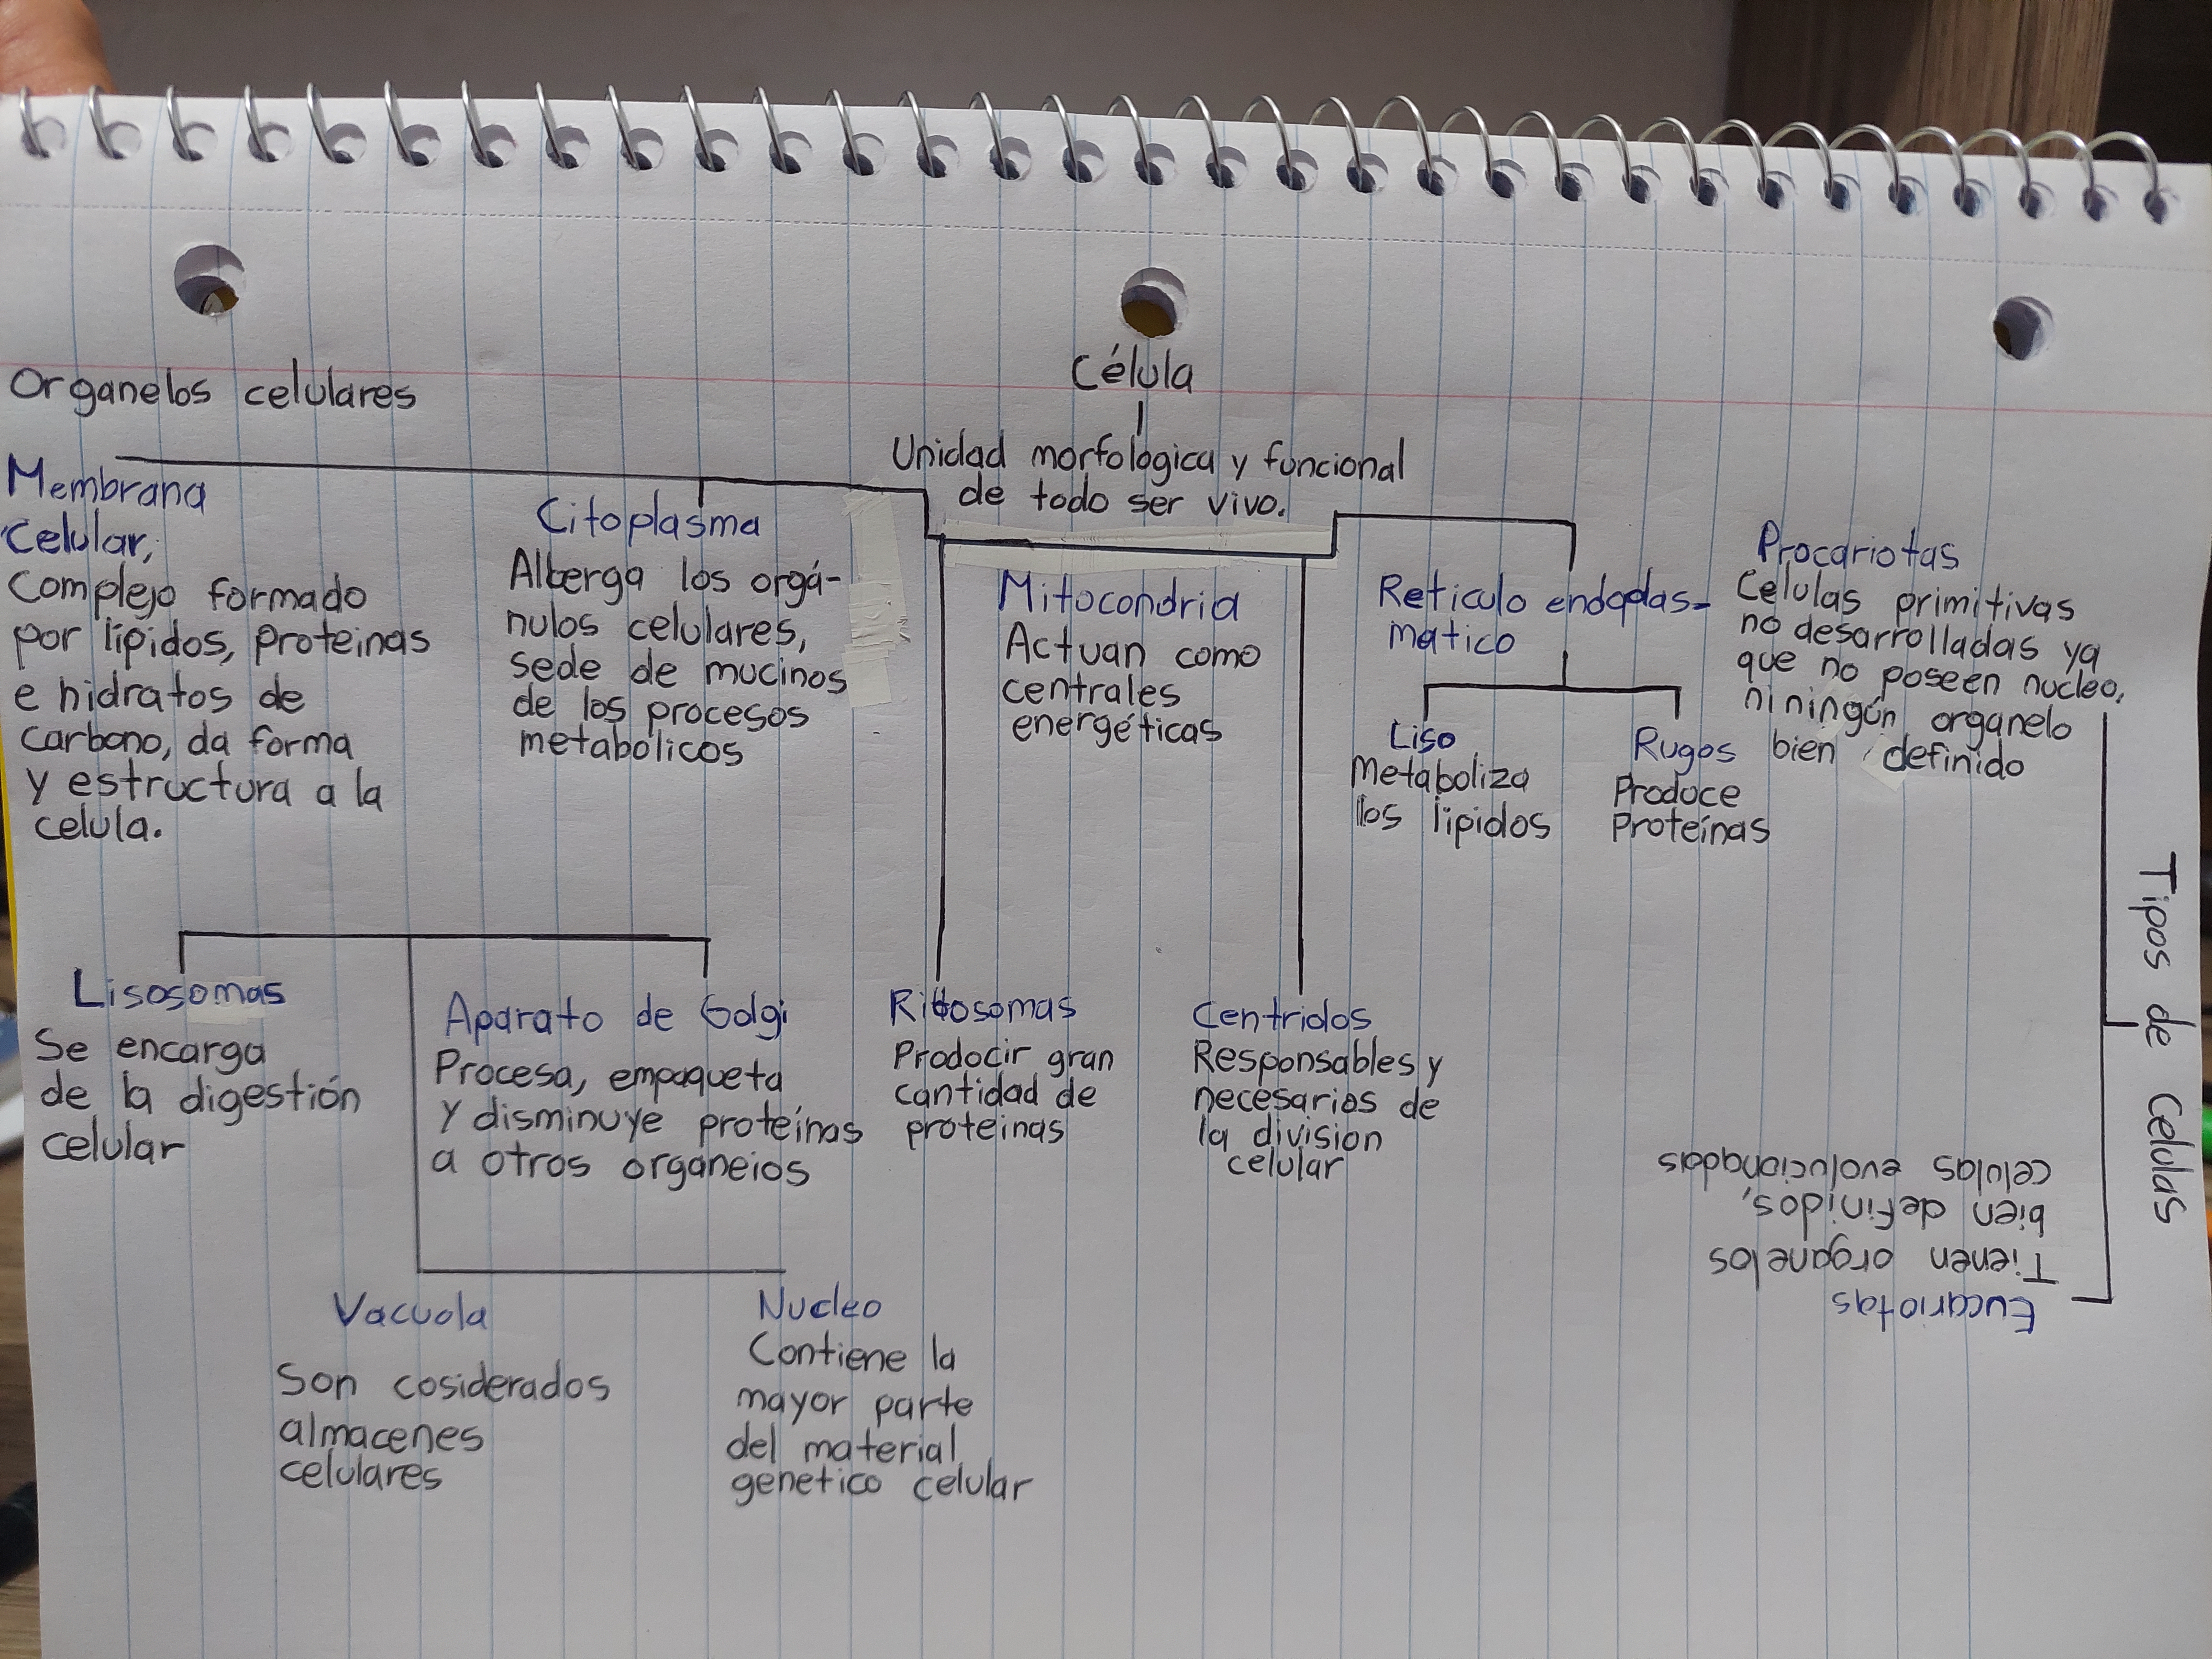 Célula
Unidad morfologica y funcional
de todo ser vivo.
Organelos celulares
Membrana
Celular,
Complejo formado
por lipidos, proteinas
e hidratos de
carbono, da forma
y estructura a la
celula.
Citoplasma
Alberga los orgá-
nulos celulares,
sede de mucinos
de los procesos
metabolicos
Mitocondria
Actuan como
centrales
energéticas
Reticulo endoplas-
matico
Liso
Metaboliza
los lipidos
Rugos
Produce
Proteínas
Procariotas
Celulas primitivas
no desarrolladas ya
que no poseen nucleo,
ni ningún organelo
bien definido
Tipos de Celulas
Lisosomas
Se encarga
de la digestión
celular
Aparato de Golgi
Procesa, empaqueta
y disminuye proteínas
a otros organelos
Ribosomas
Prodocir gran
cantidad de
proteinas
Centridos
Responsables y
necesarios de
la division
celular
Eucariotas
Tienen organelos
bien definidos,
celulas evolucionadas
Vacuola
Son cosiderados
almacenes
celulares
Nucleo
Contiene la
mayor parte
del material
genetico celular